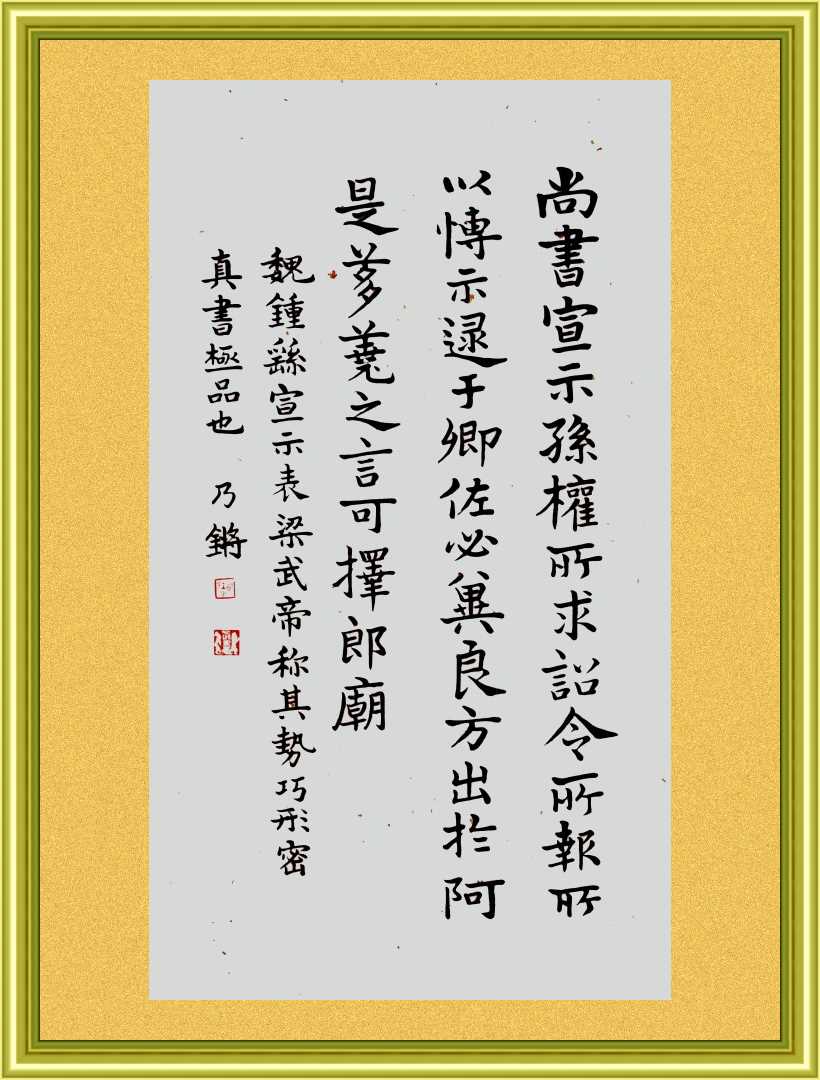 尚書宣示孫權所求詔令所報所
以博示逯于卿佐必兾良方出於阿
是芻蕘之言可擇郎廟
魏鍾繇宣示表梁武帝称其势巧形密
真書極品也 乃鏘